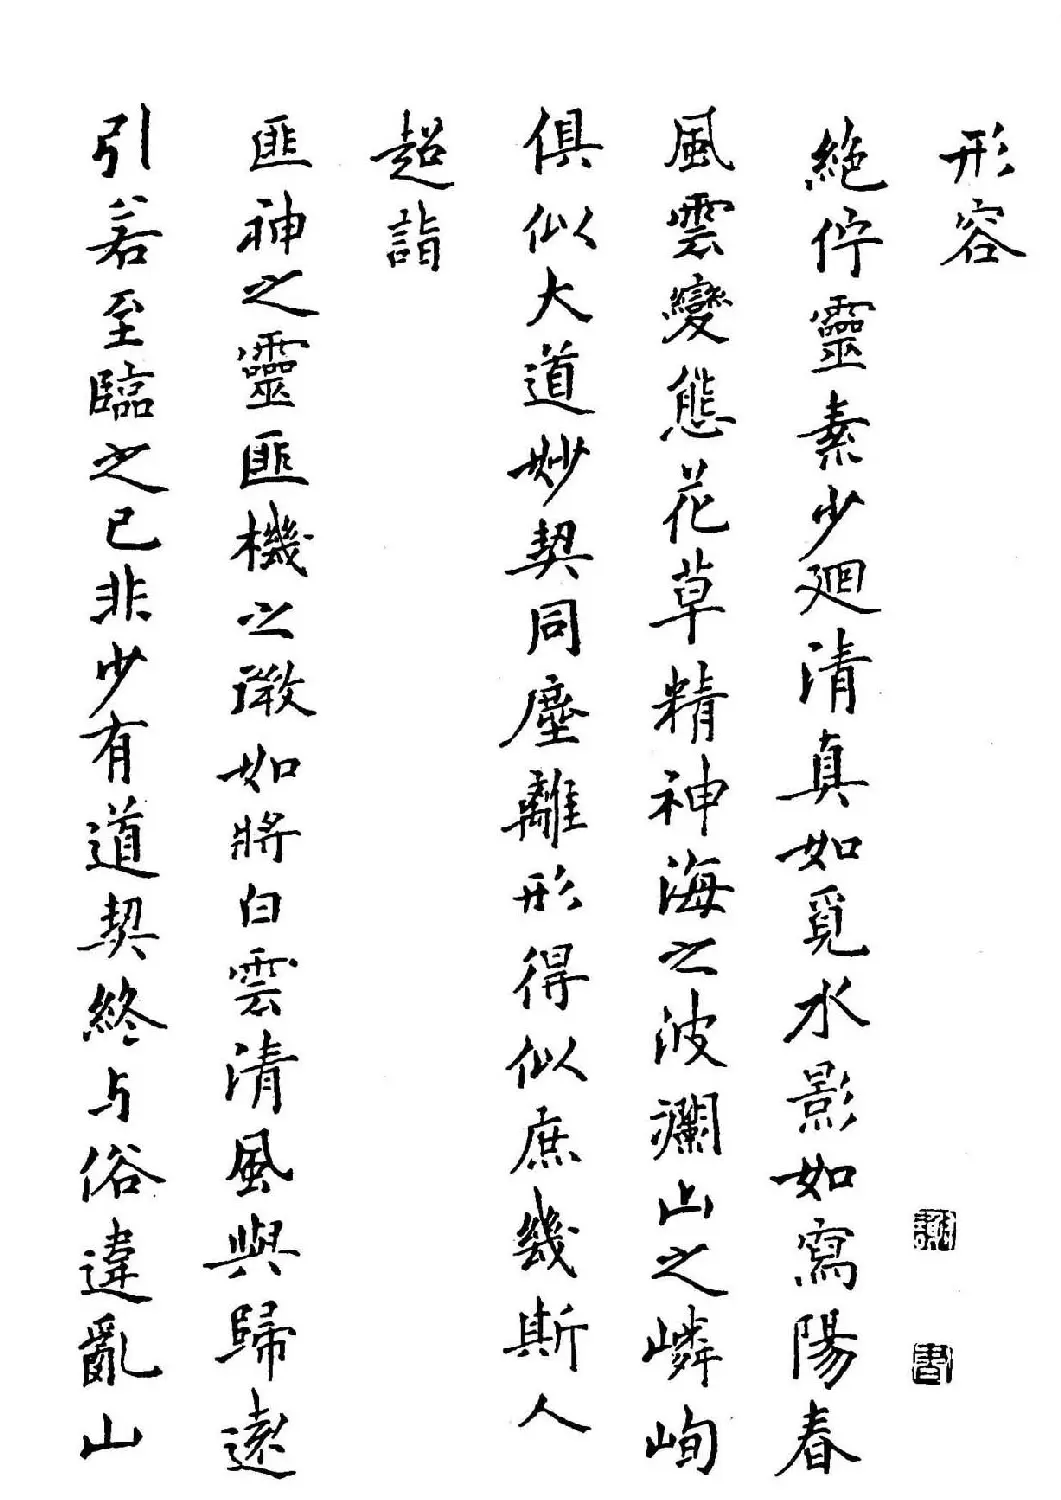 形容
絶佇靈素少廻清真如覓水影如寫陽春
風雲變態花草精神海之波瀾山之嶙峋
俱似大道妙契同塵離形得似庶幾斯人
超詣
匪神之靈匪機之微如將白雲清風與歸遠
引若至臨之已非少有道契終与俗違亂山